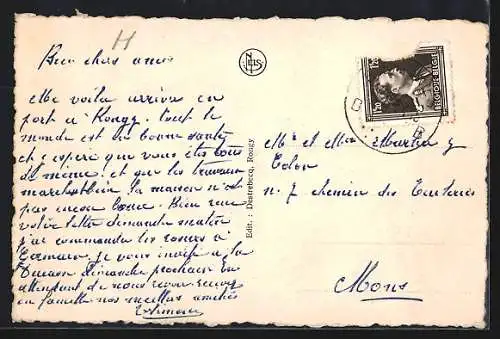 H
Bien chers amis
Me voila arriver en
port a Rongy. Tout le
monde est en bonne santé
et j espere que vous êtes tous
de meme. et que les travaux
marchent bien la maison n'est
pas encore Bien reçu
votre lettre dimanche matin
j'ai commander les roses à
je vous invite a la
Ducasse dimanche prochain En
attendant de nous revoir recevez
en famille nos meilles amitiés
NELS
Edit. : Destrebecq, Rongy
1.50 1.50
BELGIQUE-BELGIE
Mr et Me Martin
Colon
n. 7 chemin des Tuileries
Mons